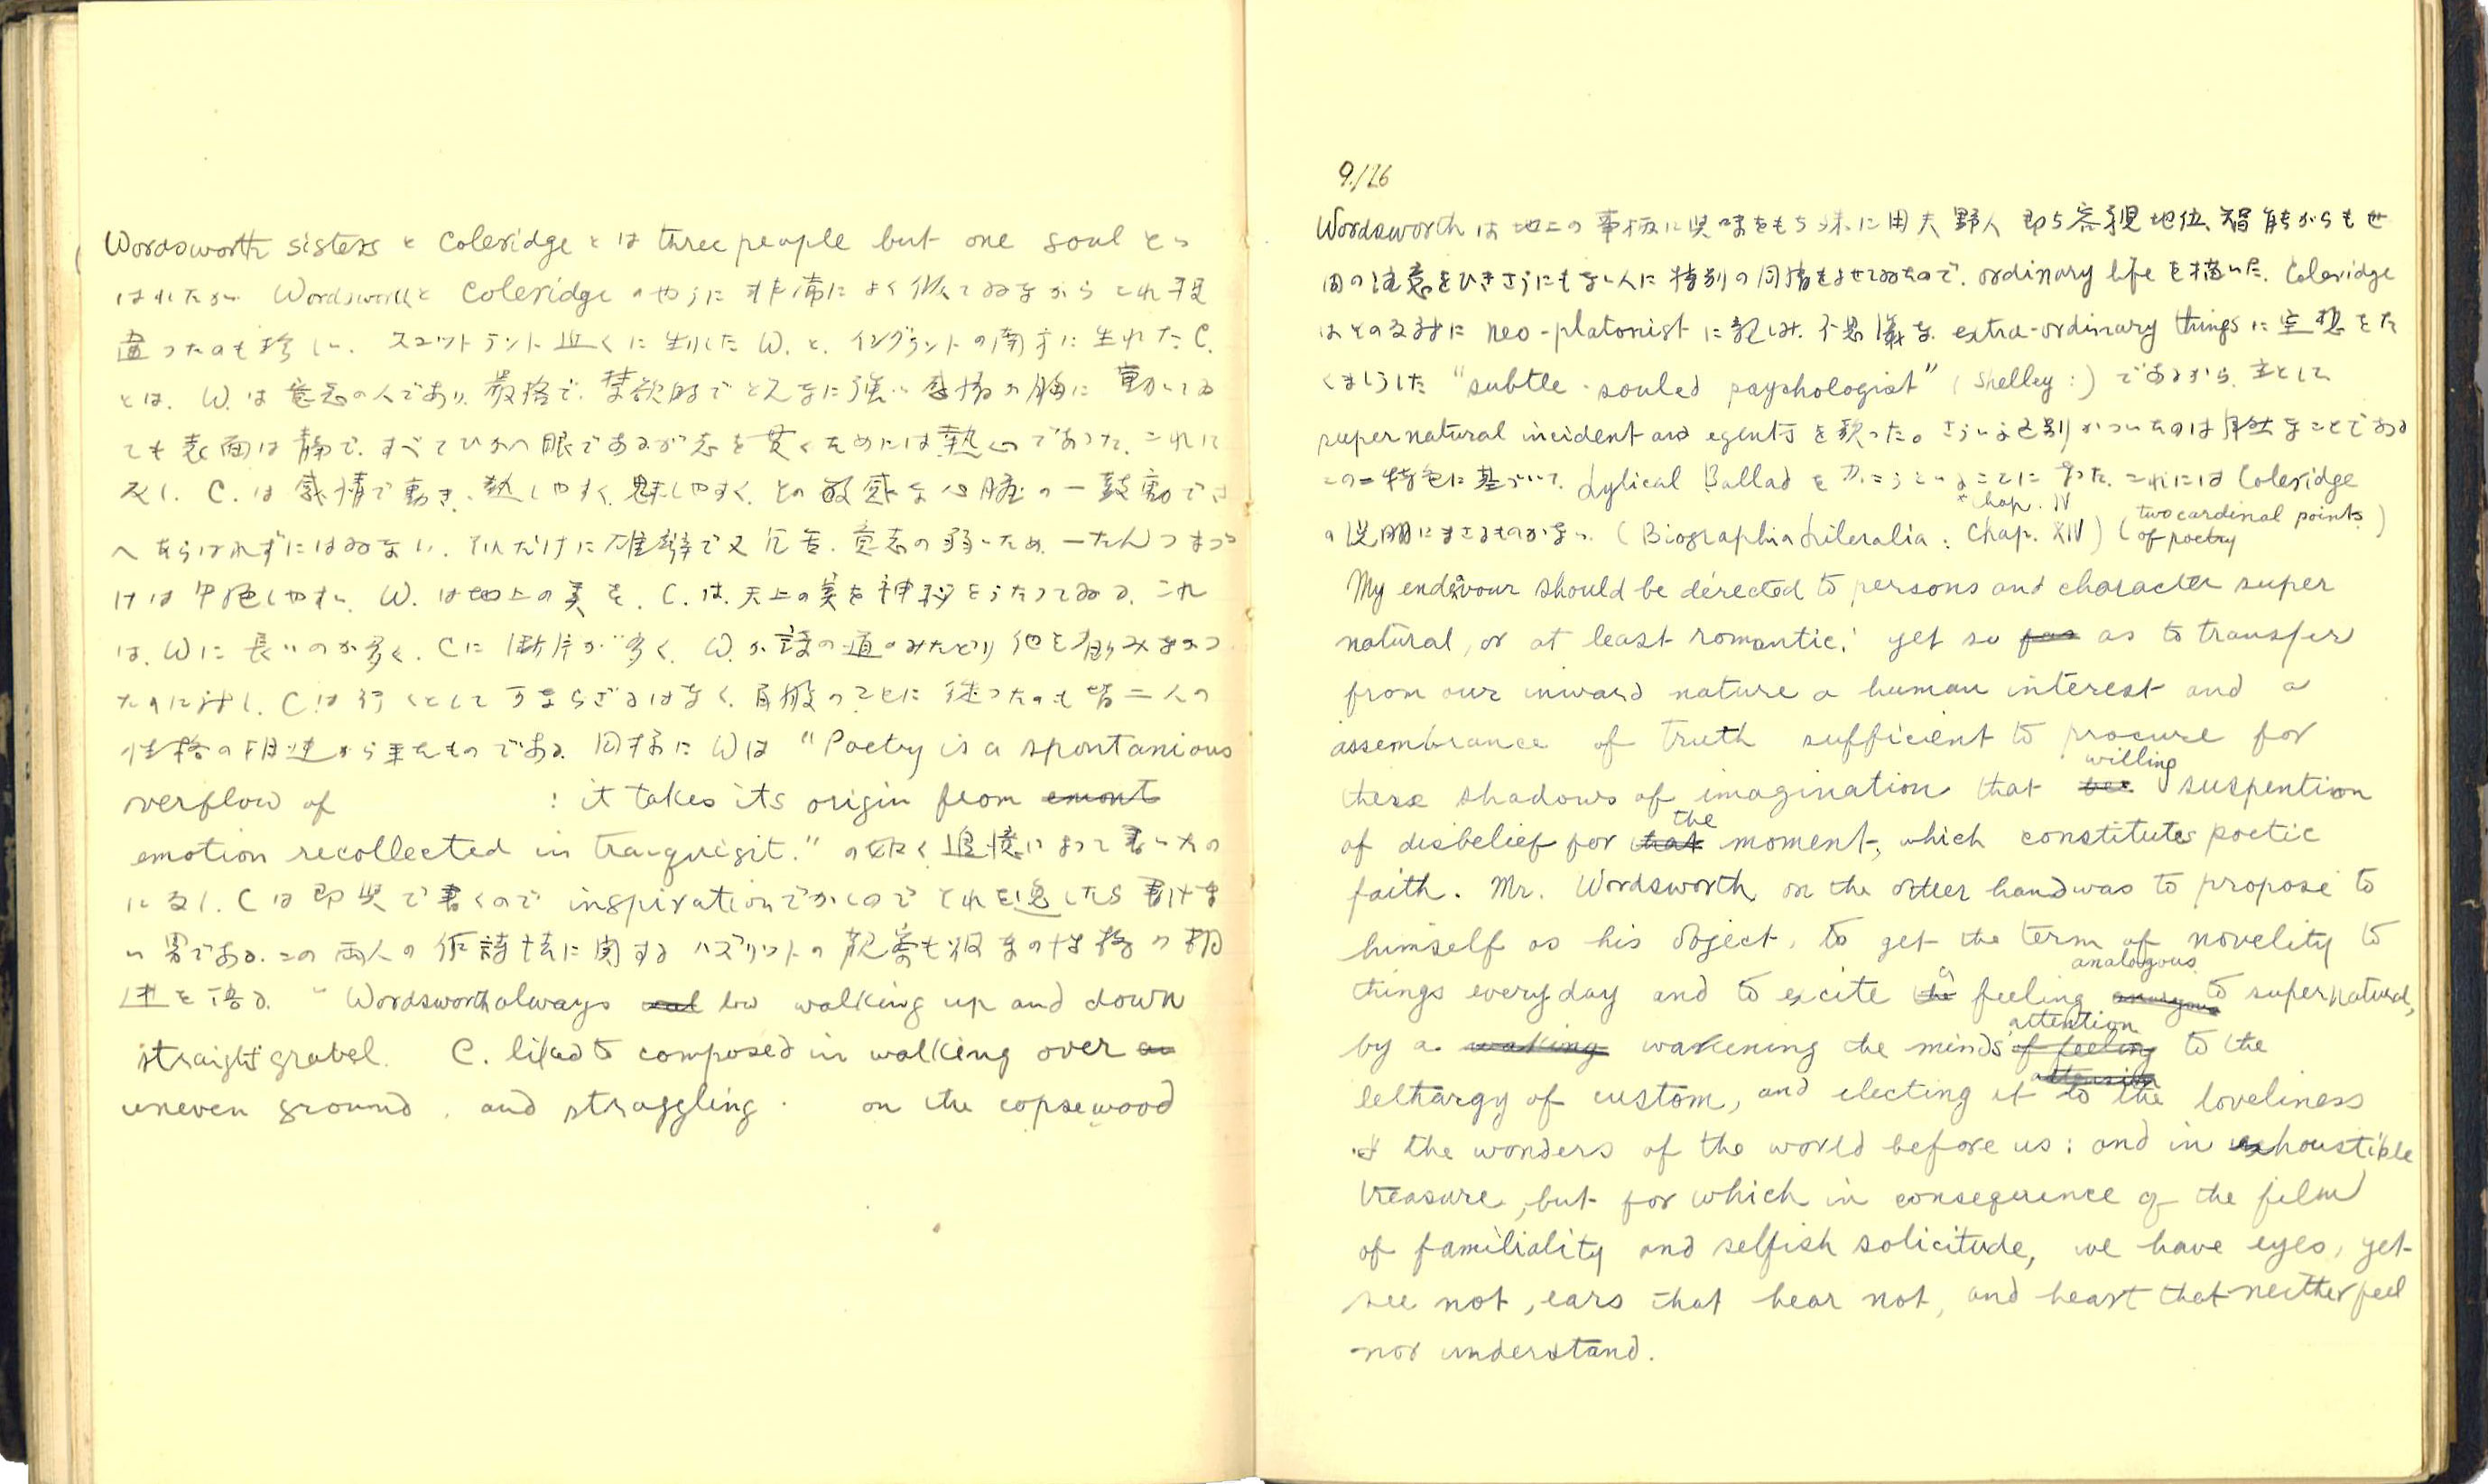 Wordsworth sisters と Coleridge とは three people but one soul とい
はれたが Wordsworthと Coleridge のやうに非常によく似てゐながらこれ程
違つたのも珍しい. スコットランド近くに生れした W. と、イングランドの南方に生れた C.
とは、W. は意志の人であり、厳格で、禁欲的でどんなに強い感情が胸に動いてゐ
ても表面は静で、すべてひかへ眼であるが志を貫くためには熱心であつた. これに
反し. C. は感情で動き、熱しやすく、魅しやすく、との敏感な心臓の一鼓動でさ
へあらはれずにはゐない. それだけに雄辯で又 冗舌. 意志の弱いため、一たんつまづ
けは 申色しやすい. W. は地上の美を、C. は、天上の美を神秘をうたつてゐる. これ
は、Wに長いのが多く、Cに断片が多く、W. が詩の道のみたどり他を顧みなかつ
たのに対し、C は行くとして可ならざるはなく、百般のことに従つたのも皆二人の
性格の相違から来たものである. 同様に Wは "Poetry is a spontanious
verflow of : it takes its origin from emont
emotion recollected in tranquisit." の如く追憶によつて書いたの
に反し. C は即興で書くので inspirationでかくのでそれを逸したら書けな
い男である. この両人の作詩法に関するハズリットの観察も彼等の性格の相
違を語る. "Wordsworth always walking up and down
straight grabel. C. liked to composed in walking over an
uneven ground, and straggling. on the copsewood
9./26
Wordsworth は地上の事柄に興味をもち殊に田夫野人 即ち容貌地位、智能からもせ
間の注意をひきさうにもない人に特別の同情をよせてゐるので. ordinary life を描いた. Coleridge
はその反対に neo-platonist に親しみ、不思議な extra-ordinary things に空想をた
くましうした "subtle-souled psychologist" (Shelley:) であるから、主として
supernatural incident and egents を歌つた。さういふ区別がついたのは自然なことである
この二特色に基づいて、Lylical Ballad をかこうといふことになつた. これには Coleridge
* Chap. IV
の説明にまさるものがない. (Biographia Lileralia: Chap. XIV) (two cardinal points of poetry)
My endevour should be derected to persons and character super
natural, or at least romantic; yet so far as to transfer
from our inward nature a human interest and a
assembrance of truth sufficient to procure for
these shadows of imagination that willing suspention
of disbelief for that the moment, which constitutes poetic
faith. Mr. Wordsworth on the other hand was to propose to
himself as his object, to get the term of novelity to
things everyday and to excite the a feeling analogous to supernatural,
by a waking wakening the minds' of feeling attention to the
lethargy of custom, and electing it to the loveliness
& the wonders of the world before us: and in exhoustible
treasure, but for which in consequence of the film
of familiality and selfish solicitude, we have eyes, yet
see not, ears that hear not, and heart that neither feel
nor understand.